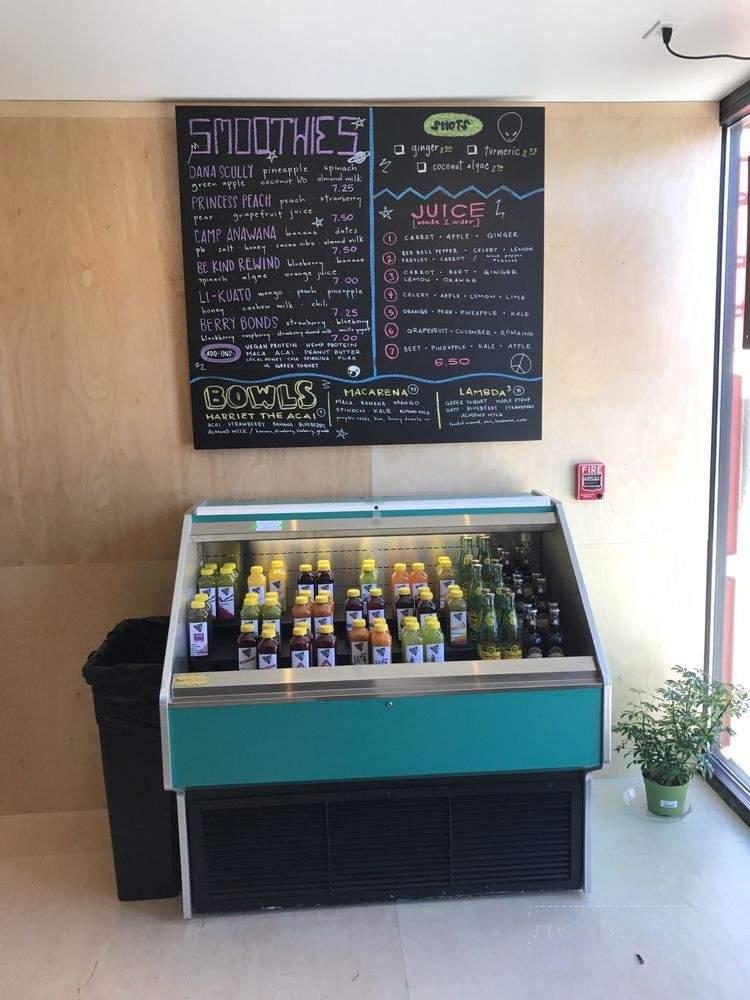 SMOOTHIES
DANA SCULLY pineapple spinach
green apple coconut h2o almond milk
7.25
PRINCESS PEACH peach strawberry
pear grapefruit juice
7.50
CAMP ANAWANA banana dates
pb salt honey cacao nibs almond milk
7.50
BE KIND REWIND blueberry banana
spinach algae orange juice
7.00
LI-KUATO mango peach pineapple
honey cashew milk chili
7.25
BERRY BONDS strawberry blueberry
blackberry raspberry strawberry almond milk vanilla yogurt
7.00
ADD-ONS: VEGAN PROTEIN HEMP PROTEIN
MACA ACAI PEANUT BUTTER
LOCAL HONEY CHIA SPIRULINA FLAX
GREEK YOGURT
SHOTS
ginger turmeric
coconut algae
JUICE
[made 2 order]
1 CARROT • APPLE • GINGER
2 RED BELL PEPPER • CELERY • LEMON
PARSLEY • CARROT / black pepper
3 CARROT • BEET • GINGER
LEMON • ORANGE
4 CELERY • APPLE • LEMON • LIME
5 ORANGE • PEAR • PINEAPPLE • KALE
6 GRAPEFRUIT • CUCUMBER • ROMAINE
7 BEET • PINEAPPLE • KALE • APPLE
6.50
BOWLS
HARRIET THE ACAI
ACAI STRAWBERRY BANANA BLUEBERRY
ALMOND MILK / banana, strawberry, blueberry,
MACARENA
MACA BANANA MANGO
SPINACH KALE ALMOND MILK
pumpkin seeds, kiwi, honey
LAMBDA3
GREEK YOGURT MAPLE SYRUP
OATS BLUEBERRY STRAWBERRY
ALMOND MILK
FIRE